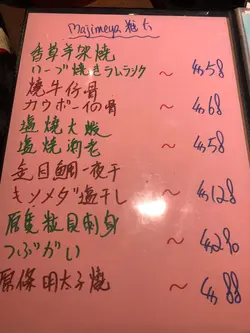 Majimeya 粒大
香草羊架燒
ハーブ焼きラムラック ～ 4a58
燒牛仔骨
カウボーイの骨 ～ 4a68
塩燒大蝦
塩焼海老 ～ 4a58
金目鯛一夜干
キンメダ塩干し ～ 4a128
原隻粒貝刺身
つぶがい ～ 4a280
原條明太子燒 ～ 4a88